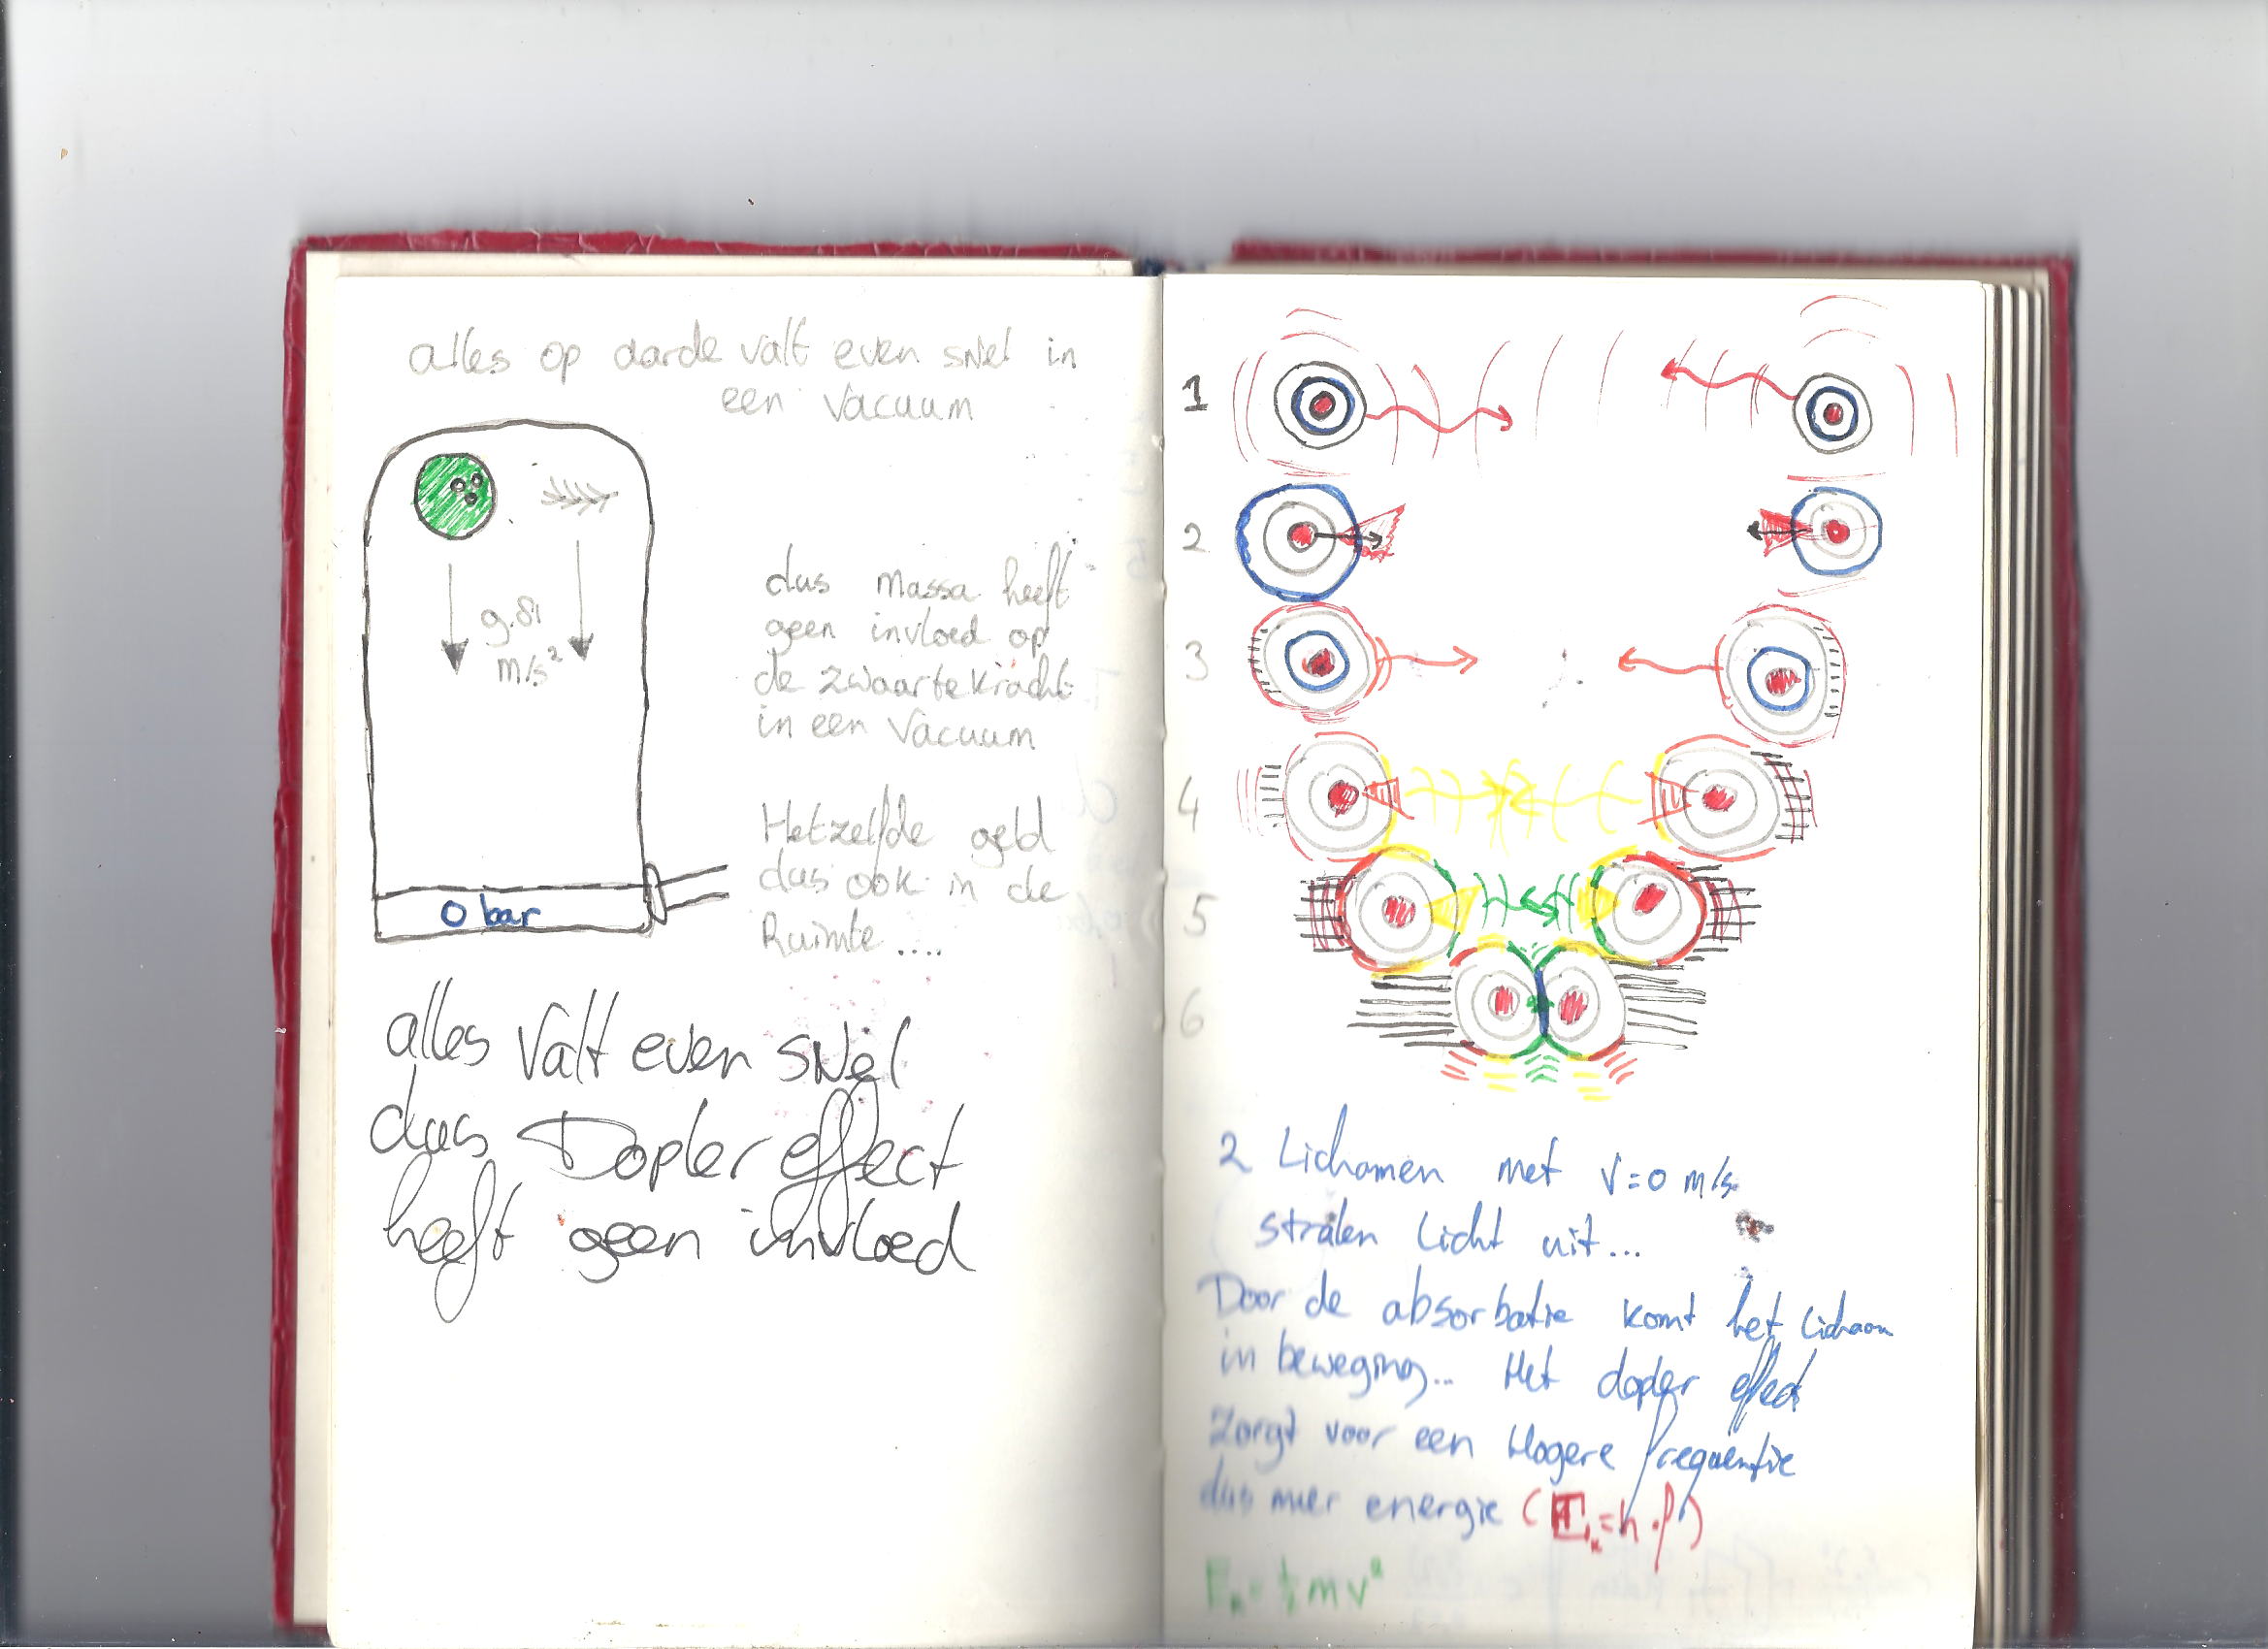 alles op aarde valt even snel in
een vacuum
9.81
m/s²
dus massa heeft
geen invloed op
de zwaartekracht
in een vacuum
Hetzelfde geld
dus ook in de
Ruimte ....
0 bar
alles valt even snel
dus Dopler effect
heeft geen invloed
1
2
3
4
5
6
2 Lichamen met v=0 m/s
stralen licht uit...
Door de absorbatie komt het lichaam
in beweging... Het dopler effect
zorgt voor een Hogere frequentie
dus meer energie (E=h.f)
Ek=½mv²